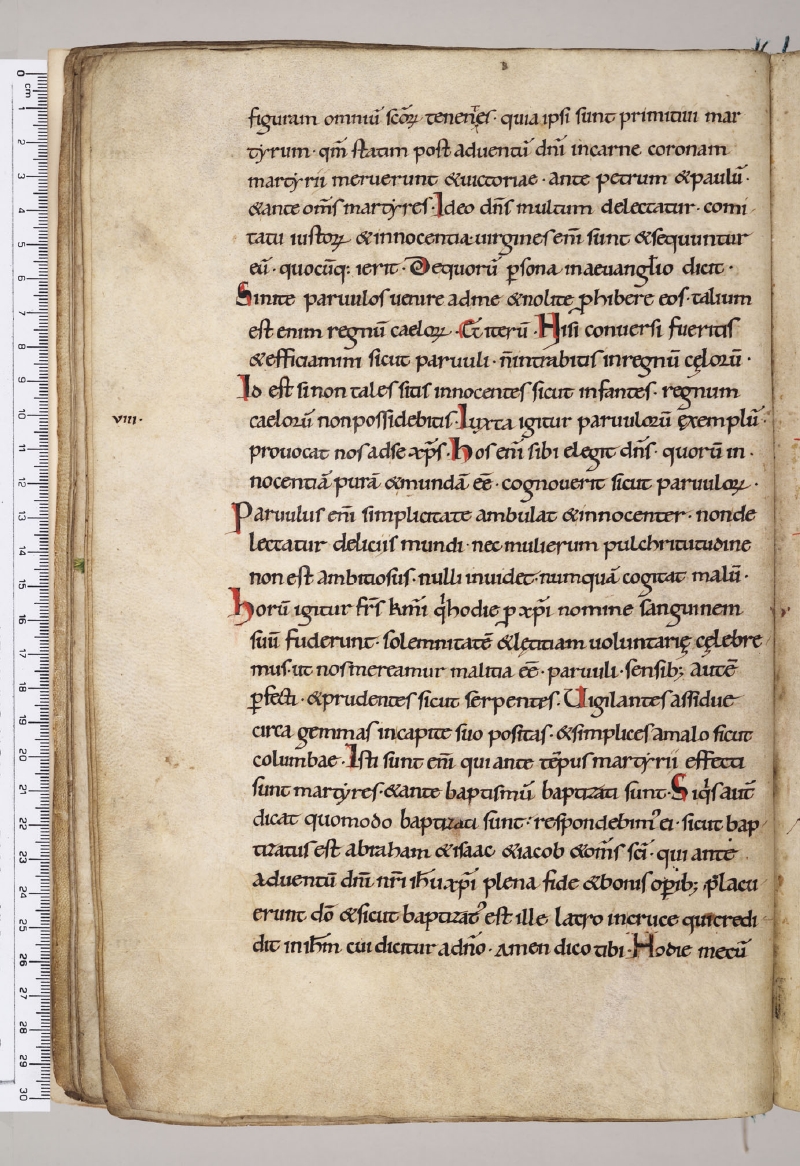 figuram omniū scōꝝ tenentes· quia ipsi sunt primitiui mar
tyrum· qm̄ statim post aduentū dn̄i in carne coronam
martyrii meruerunt &uictoriae· ante petrum &paulū·
&ante om̄s martyres· Ideo dn̄s multum delectatur· comi
tatu iustoꝝ &innocentia· uirgines em̄ sunt &sequuntur
eū· quocūq; ierit· De quorū ꝑsona in aeuanglīo dicit·
Sinite paruulos uenire ad me &nolite ꝓhibere eos· talium
est enim regnū caeloꝝ· Et iterū· Nisi conuersi fueritis
&efficiamini sicut paruuli· n̄ intrabitis in regnū cęlorū·
Id est si non tales sitis innocentes sicut infantes· regnum
viii·
caelorū non possidebitis· Iuxta igitur paruulorū exemplū·
prouocat nos ad se xp̄s· hos em̄ sibi elegit dn̄s· quorū in·
nocentiā purā &mundā eē· cognouerit sicut paruuloꝝ·
Paruulus em̄ simplicitate ambulat &innocenter· non de
lectatur deliciis mundi· nec mulierum pulchritudine
non est ambitiosus· nulli inuidet· numquā cogitat malū·
horū igitur fr̄s km̄i q̄ hodie ꝓ xp̄i nomine sanguinem
suū fuderunt· solemnitatē &lętitiam uoluntarię cęlebre
mus· ut nos mereamur malitia eē· paruuli· sensib; autē
ꝑfecti· &prudentes sicut serpentes· Uigilantes assidue
circa gemmas in capite suo positas· &simplices a malo sicut
columbae· Isti sunt em̄ qui ante tēpus martyrii effecti
sunt martyres· &ante baptismū baptizati sunt· Siq̄s aut̄
dicat quomodo baptizati sunt· respondebim᾿ ei· sicut bap
tizatus est abraham &isaac &iacob &om̄s sc̄i· qui ante
aduentū dn̄i nr̄i ih̄u xp̄i plena fide &bonis oꝑib; placu
erunt dō &sicut baptizat᾿ est ille latro in cruce qui credi
dit in ih̄m cui dicitur a dn̄o· amen dico tibi· Hodie mecū